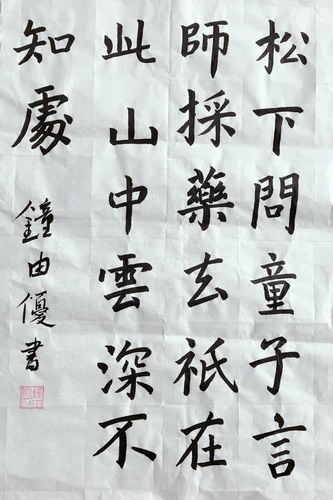 松下問童子言
師採藥去祇在
此山中雲深不
知處
鐘由優書